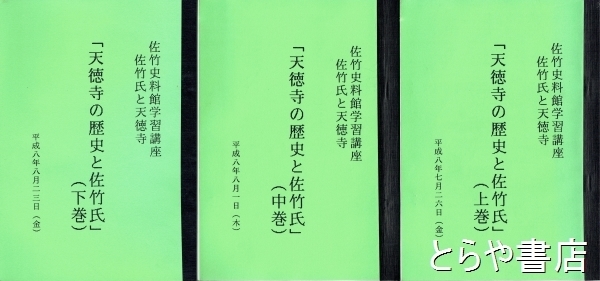 佐竹史料館学習講座
佐竹氏と天徳寺
「天徳寺の歴史と佐竹氏」
（上巻）
平成八年七月二六日（金）
佐竹史料館学習講座
佐竹氏と天徳寺
「天徳寺の歴史と佐竹氏」
（中巻）
平成八年八月一日（木）
佐竹史料館学習講座
佐竹氏と天徳寺
「天徳寺の歴史と佐竹氏」
（下巻）
平成八年八月二三日（金）
とらや書店